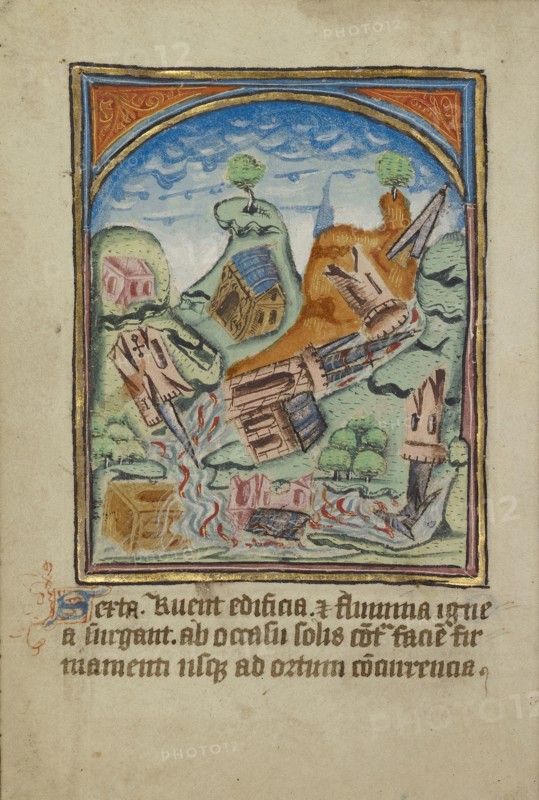 Sexta. Ruent edificia. ⁊ flumina igne
a surgant. ab occasu solis cōtᵃ faciē fir
mamenti usqꝫ ad ortum cōcurrencia.
PHOTO12